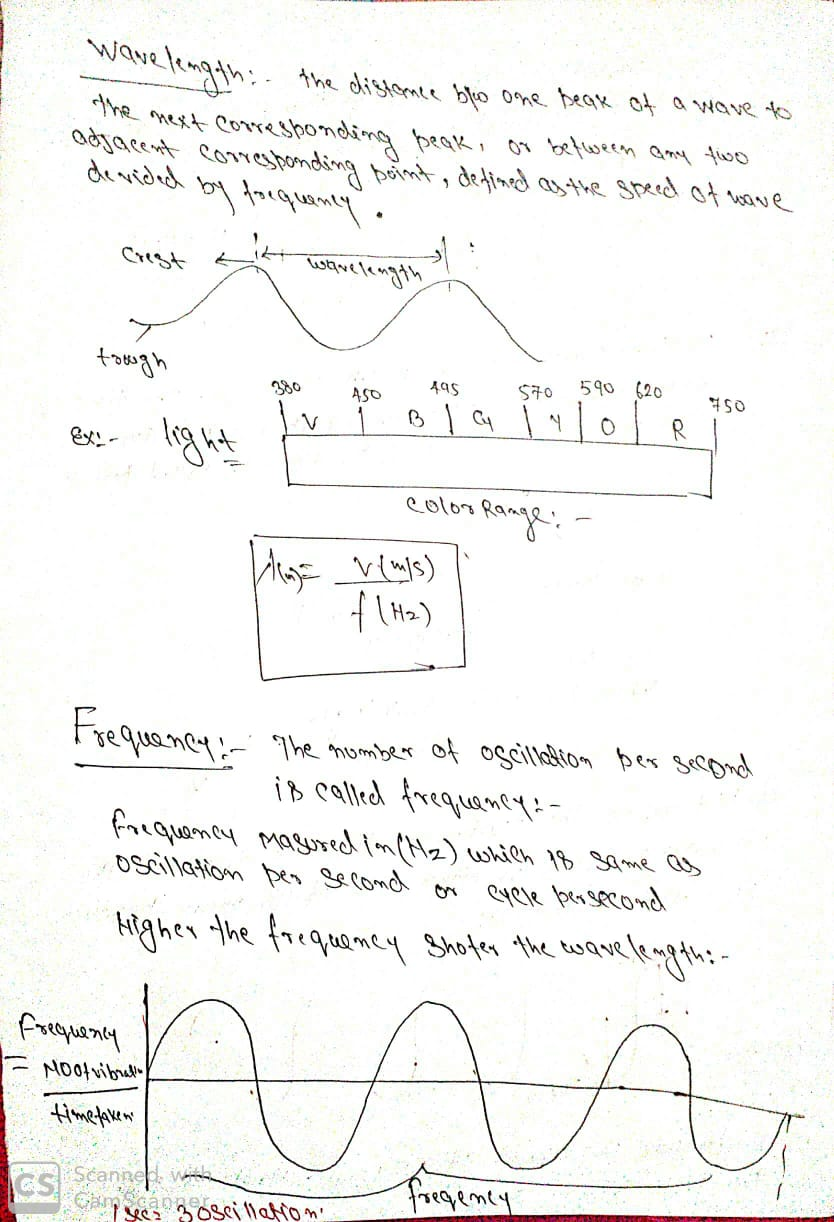 Wavelength:- the distance b/w one peak of a wave to
The next corresponding peak, or between any two
adjacent corresponding point, defined as the speed of wave
devided by frequency.
Crest wavelength
trough
380 450 495 570 590 620 750
V B G Y O R
Ex:- light
Color Range:-
λ(m)= v(m/s)
f(Hz)
Frequency:- The number of oscillation per second
is called frequency:-
frequency masured in (Hz) which is same as
oscillation per second or cycle persecond
Higher the frequency shoter the wavelength:-
Frequency
= NO of vibration
timetaken
freqency
1 sec = 3 oscillation
CS Scanned with
CamScanner